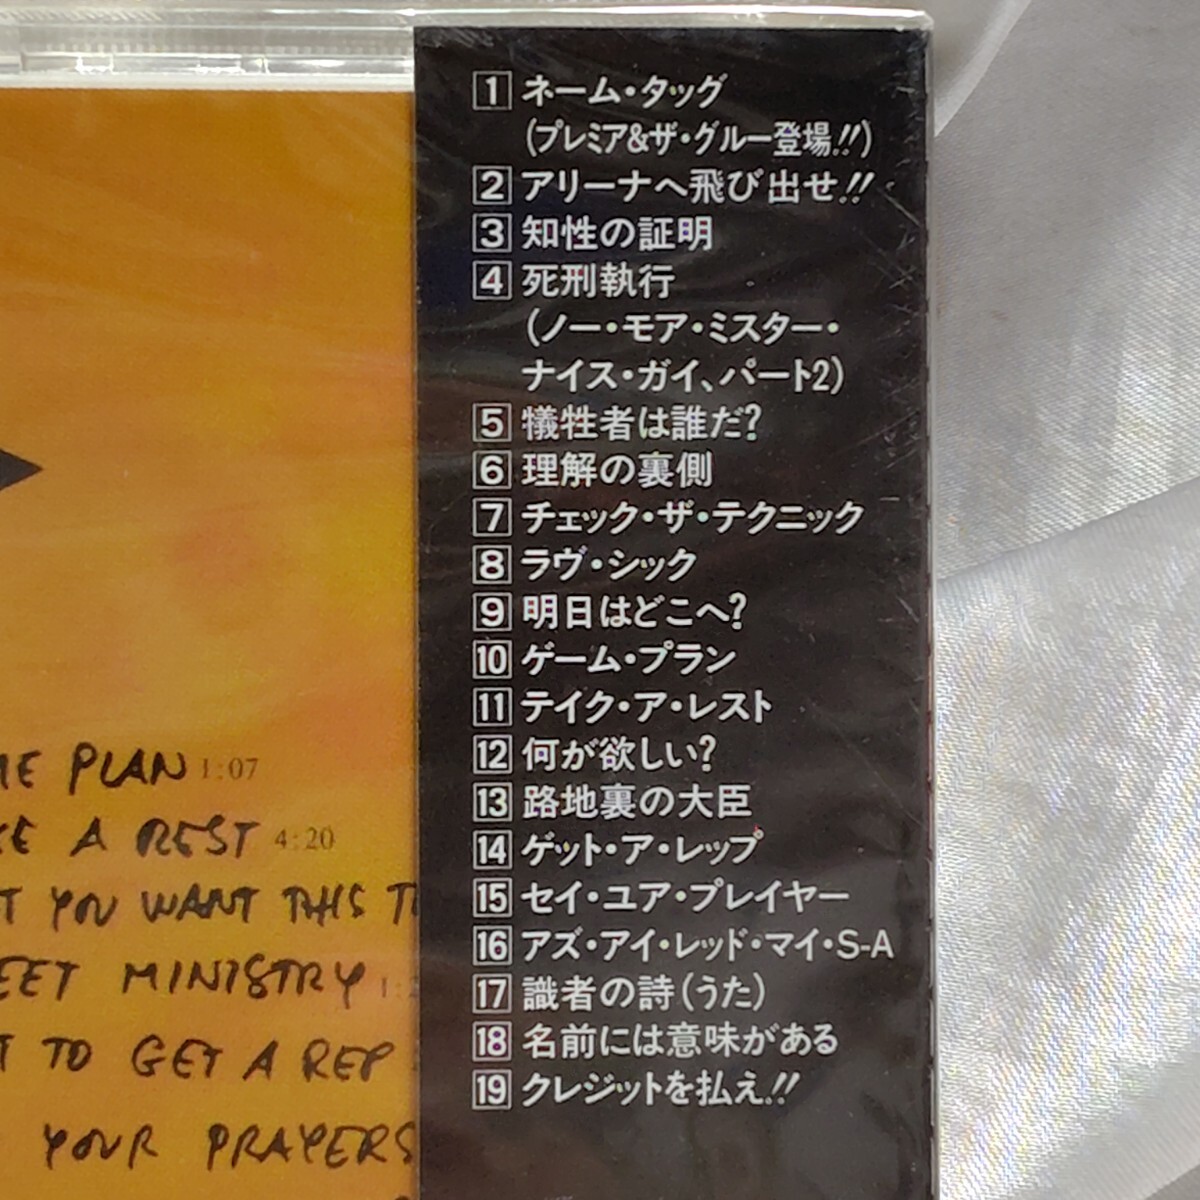 1 ネーム・タッグ
(プレミア&ザ・グルー登場!!)
2 アリーナへ飛び出せ!!
3 知性の証明
4 死刑執行
(ノー・モア・ミスター・
ナイス・ガイ、パート2)
5 犠牲者は誰だ?
6 理解の裏側
7 チェック・ザ・テクニック
8 ラヴ・シック
9 明日はどこへ?
10 ゲーム・プラン
11 テイク・ア・レスト
12 何が欲しい?
13 路地裏の大臣
14 ゲット・ア・レップ
15 セイ・ユア・プレイヤー
16 アズ・アイ・レッド・マイ・S-A
17 識者の詩(うた)
18 名前には意味がある
19 クレジットを払え!!
ME PLAN 1:07
KE A REST 4:20
T YOU WANT THIS T
EET MINISTRY 1:
T TO GET A REP
YOUR PRAYERS